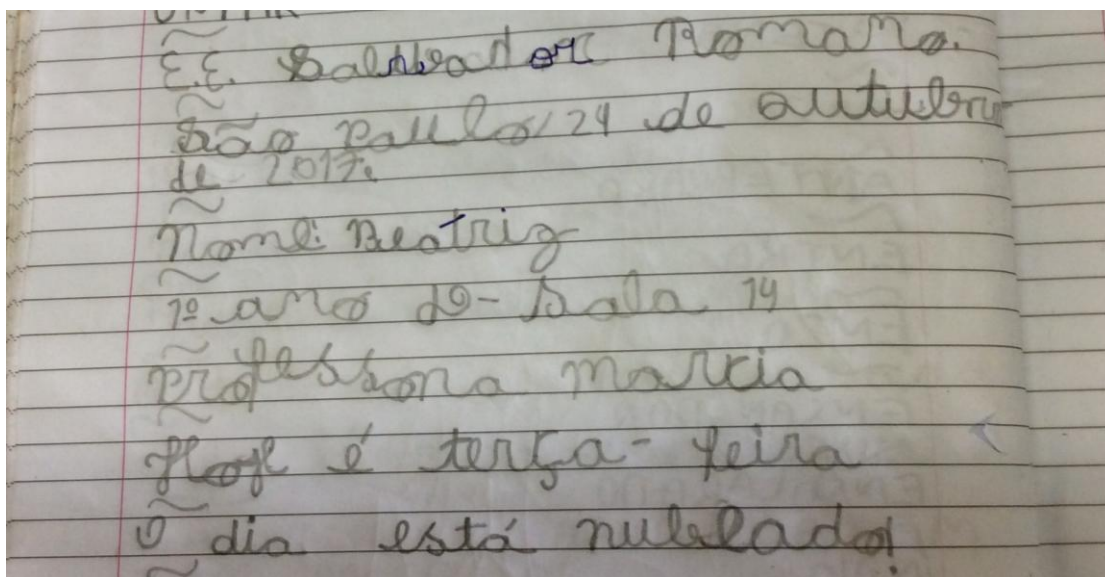 E.E. Salvador Romano.
São Paulo, 24 de outubro
de 2017.
Nome: Beatriz
1º ano d - Sala 14
Professora Marcia
Hoje é terça-feira
O dia está nublado!